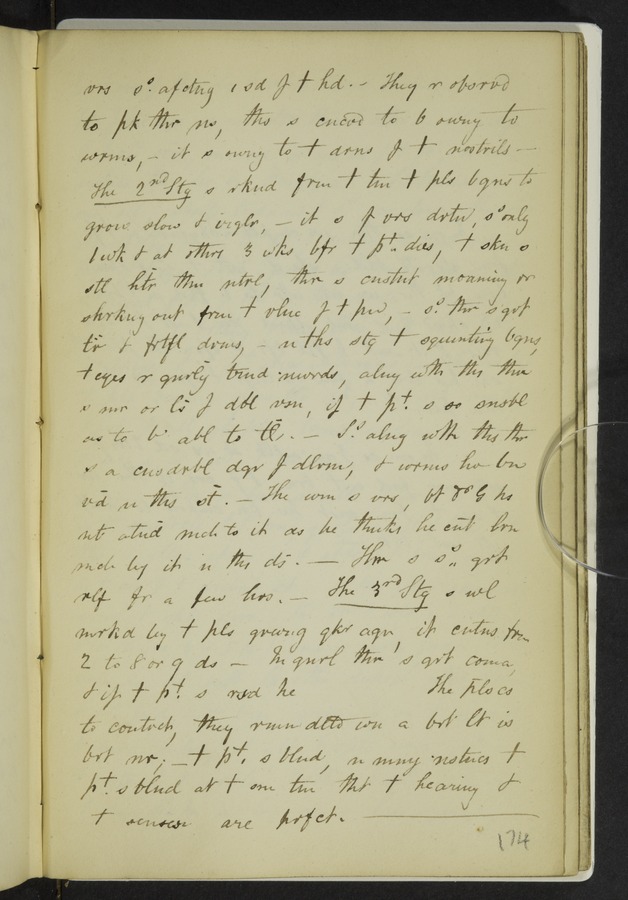 vrs s⁰. afctng 1 sd f † hd. - They r obsrvd
to pk thr ns, ths s cncvd to b owng to
worms, - it s owng to † drns f † nostrils -
The 2ⁿᵈ Stg s rknd frm † tm † pls bgns to
grow slow & irglr, - it s f vrs drtn, s⁰ only
1 wk & at othrs 3 wks bfr † pᵗ. dies, † skn s
stl htr thn ntrl, thr s cnstnt moaning or
shrkng out frm † vlnc f † pn, - s⁰. thr s grt
& frtfl drms, - n ths stg † squinting bgns,
† eyes r gnrly trnd nwrds, alng wth ths thr
s mr or ls f dbl vsn, if † pᵗ. s so snsbl
as to b abl to tl. - S⁰ alng wth ths thr
s a cnsdrbl dgr f dlrm, & worms hv bn
vd n ths st. - The urn s vrs, bt Dʳ G hs
nt atnd mch to it as he thnks he cnt lrn
mch by it n ths ds. - Thr s s⁰. grt
rlf fr a few hrs. - The 3ʳᵈ Stg s wl
mrkd by † pls grwng qkr agn, it cntns frm
2 to 8 or 9 ds - In gnrl thr s grt coma,
& if † pᵗ. s rsd he The pls cs
to contrct, they rmn dltd wn a brt lt is
brt nr, - † pᵗ. s blnd, n mny nstncs †
pᵗ. s blnd at † sm tm tht † hearing &
† senses are prfct.
174